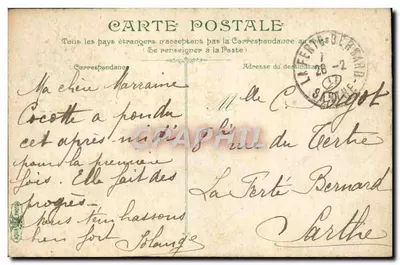 CARTE POSTALE
Tous les pays étrangers n'acceptent pas la Correspondance au
(Se renseigner à la Poste)
Correspondance
Adresse du destinataire
LA FERTÉ-BERNARD
28 -2
SARTHE
Ma chère Marraine
Cocotte a pondu
cet après midi
pour la première
fois. Elle fait des
progrès
hassons
bien fort Solange
Mlle C.
rue du Tertre
La Ferté Bernard
Sarthe
PRCartes